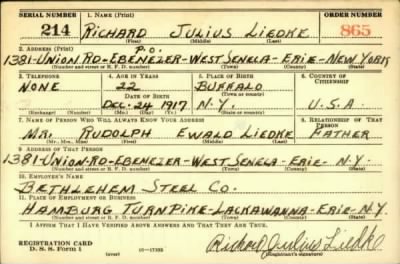 SERIAL NUMBER 1. NAME (Print) ORDER NUMBER
214 RICHARD JULIUS LIEDKE 865
(First) (Middle) (Last)
2. ADDRESS (Print) P.O.
1381-UNION-RD-EBENEZER-WEST SENECA-ERIE-NEW YORK
(Number and street or R. F. D. number) (Town) (County) (State)
3. TELEPHONE 4. AGE IN YEARS 5. PLACE OF BIRTH 6. COUNTRY OF CITIZENSHIP
NONE 22 BUFFALO
DATE OF BIRTH (Town or county)
DEC-24 1917 N.Y. U.S.A.
(Exchange) (Number) (Mo.) (Day) (Yr.) (State or country)
7. NAME OF PERSON WHO WILL ALWAYS KNOW YOUR ADDRESS 8. RELATIONSHIP OF THAT PERSON
MR. RUDOLPH EWALD LIEDKE FATHER
(Mr., Mrs., Miss) (First) (Middle) (Last)
9. ADDRESS OF THAT PERSON
1381-UNION-RD-EBENEZER-WEST SENECA-ERIE-N.Y.
(Number and street or R. F. D. number) (Town) (County) (State)
10. EMPLOYER'S NAME
BETHLEHEM STEEL CO.
11. PLACE OF EMPLOYMENT OR BUSINESS
HAMBURG TURNPIKE-LACKAWANNA-ERIE-N.Y.
(Number and street or R. F. D. number) (Town) (County) (State)
I AFFIRM THAT I HAVE VERIFIED ABOVE ANSWERS AND THAT THEY ARE TRUE.
REGISTRATION CARD
D. S. S. Form 1 16-17105 Richard Julius Liedke
(Registrant's signature)